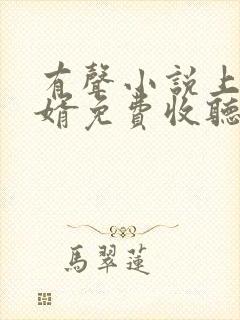 有聲小説上
婿免費收聽
馬翠蓮